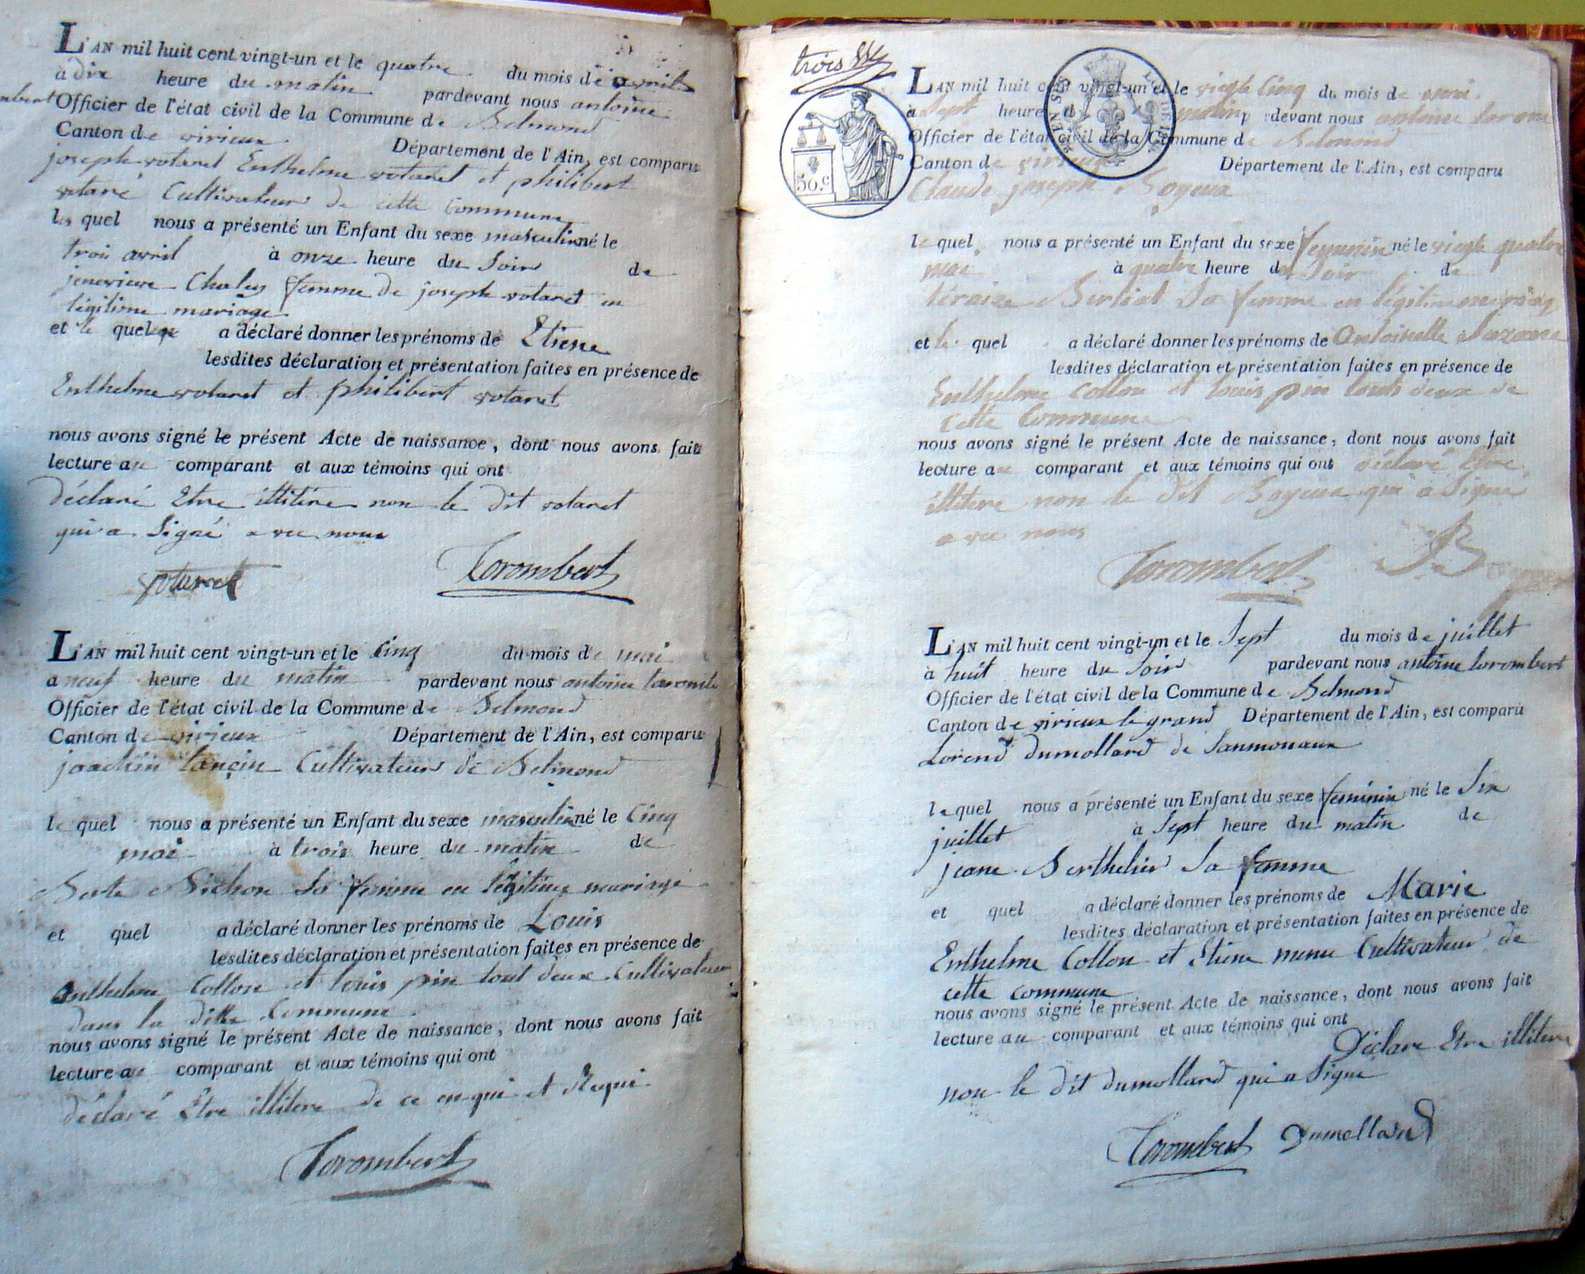 L'AN mil huit cent vingt-un et le quatre du mois de avril
à dix heure du matin pardevant nous antoine
Officier de l'état civil de la Commune de Belmond
Canton de virieux Département de l'Ain, est comparu
joseph votaret Enthelme votaret et philibert
votaré Cultivateur de cette Commune
le quel nous a présenté un Enfant du sexe masculin né le
trois avril à onze heure du Soir de
jenevieve Chaley femme de joseph votaret en
légitime mariage
et le quel a déclaré donner les prénoms de Etiene
lesdites déclaration et présentation faites en présence de
Enthelme votaret et philibert votaret
nous avons signé le présent Acte de naissance, dont nous avons fait
lecture au comparant et aux témoins qui ont
déclaré Etre illitére non le dit votaret
qui a Signé avec nous
votaret Torombert
L'AN mil huit cent vingt-un et le Cinq du mois de mai
a neuf heure du matin pardevant nous antoine toromb
Officier de l'état civil de la Commune de Belmond
Canton de virieux Département de l'Ain, est comparu
joachin tançin Cultivateur de Belmond
le quel nous a présenté un Enfant du sexe masculin né le Cinq
mai à trois heure du matin de
Berte Bichon Sa femme en légitime mariage
et quel a déclaré donner les prénoms de Louis
lesdites déclaration et présentation faites en présence de
Enthelme Collon et louis pin tout deux Cultivateur
dans la ditte Commune.
nous avons signé le présent Acte de naissance, dont nous avons fait
lecture au comparant et aux témoins qui ont
déclaré Etre illitere de ce enqui et Requi
Torombert
trois
50.c
L'AN mil huit cent vingt-un et le vingt Cinq du mois de mai
à Sept heure du matin pardevant nous antoine torom
Officier de l'état civil de la Commune de Belmond
Canton de virieux Département de l'Ain, est comparu
Claude joseph Boyeux
le quel nous a présenté un Enfant du sexe femminin né le vingt quatre
mai à quatre heure du Soir de
téraize Berliat Sa femme en légitime mariag
et le quel a déclaré donner les prénoms de Antoinette Suzanne
lesdites déclaration et présentation faites en présence de
Enthelme Collon et louis pin touts deux de
Cette Commune
nous avons signé le présent Acte de naissance, dont nous avons fait
lecture au comparant et aux témoins qui ont déclaré Etre
illitere non le dit Boyeux qui a Signé
avec nous
Torombert
L'AN mil huit cent vingt-un et le Sept du mois de juillet
à huit heure du Soir pardevant nous antoine torombert
Officier de l'état civil de la Commune de Belmond
Canton de virieux le grand Département de l'Ain, est comparu
Lorend dumollard de Sanmonaux
le quel nous a présenté un Enfant du sexe feminin né le Six
juillet à Sept heure du matin de
jeane Berthelier Sa femme
et quel a déclaré donner les prénoms de Marie
lesdites déclaration et présentation faites en présence de
Enthelme Collon et Etiene mune Cultivateur de
cette commune
nous avons signé le présent Acte de naissance, dont nous avons fait
lecture au comparant et aux témoins qui ont
Déclare Etre illitere
non le dit dumollard qui a Signe
Torombert Dumollard